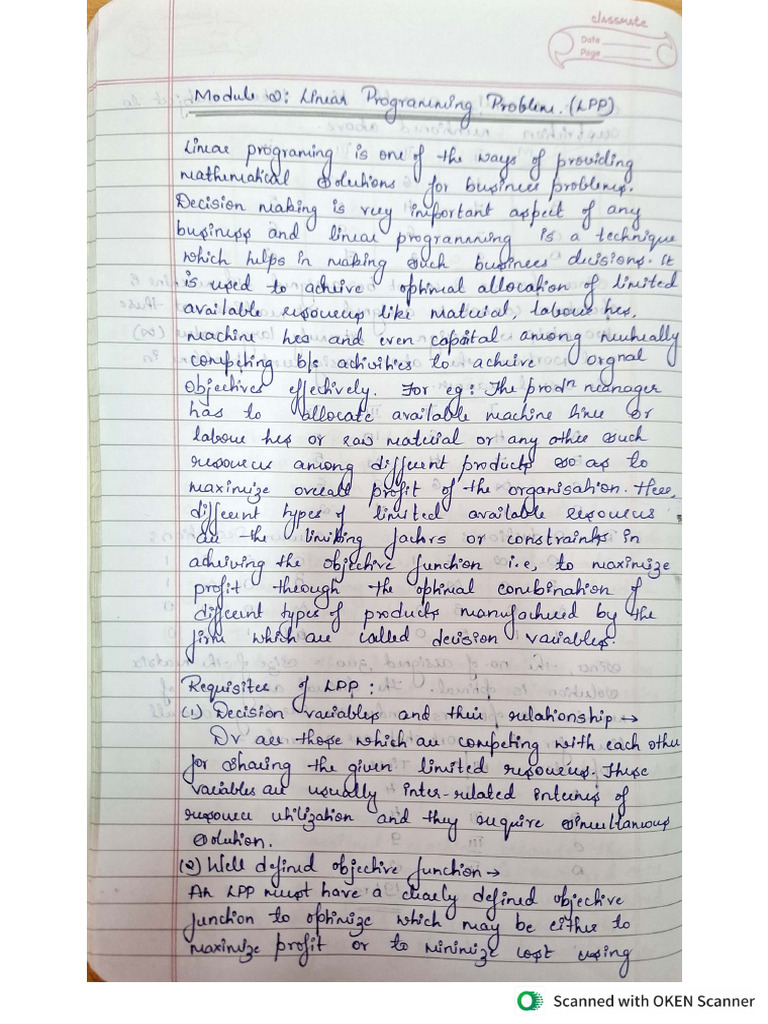 classmate
Date
Page
Module 2: Linear Programming Problem. (LPP)
Linear programing is one of the ways of providing
mathematical solutions for business problems.
Decision making is very important aspect of any
business and linear programming is a technique
which helps in making such business decisions. It
is used to achieve optimal allocation of limited
available resources like material, labour hrs,
machine hrs and even capital among mutually
competing b/s activities to achieve orgnal
objectives effectively. For eg: The prodn manager
has to allocate available machine time or
labour hrs or raw material or any other such
resources among different products so as to
maximize overall profit of the organisation. Here,
different types of limited available resources
are the limiting factors or constraints in
achieving the objective function i.e, to maximize
profit through the optimal combination of
different types of products manufactured by the
firm which are called decision variables.
Requisites of LPP :
(1) Decision variables and their relationship →
DV are those which are competing with each other
for sharing the given limited resources. These
variables are usually inter-related interms of
resource utilization and they require simultaneous
solution.
(2) Well defined objective function →
An LPP must have a clearly defined objective
function to optimize which may be either to
maximize profit or to minimize cost using
Scanned with OKEN Scanner